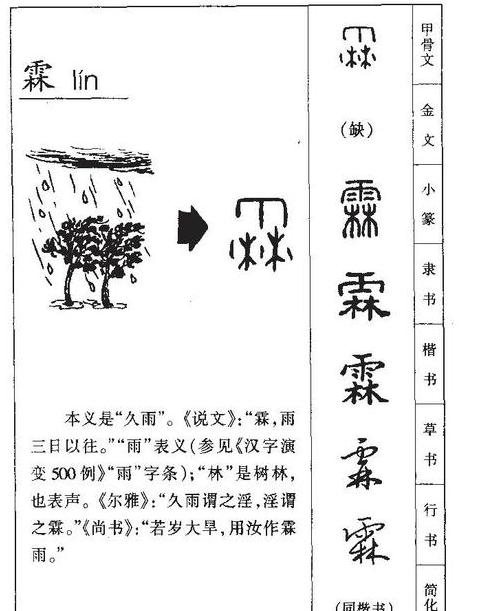 霖 lín
本义是“久雨”。《说文》：“霖，雨
三日以往。”“雨”表义（参见《汉字演
变500例》“雨”字条）；“林”是树林，
也表声。《尔雅》：“久雨谓之淫，淫谓
之霖。”《尚书》：“若岁大旱，用汝作霖
雨。”
霖
甲骨文
霖
（缺）
金文
霖
小篆
霖
隶书
霖
楷书
霖
草书
霖
行书
（同楷书）
简化